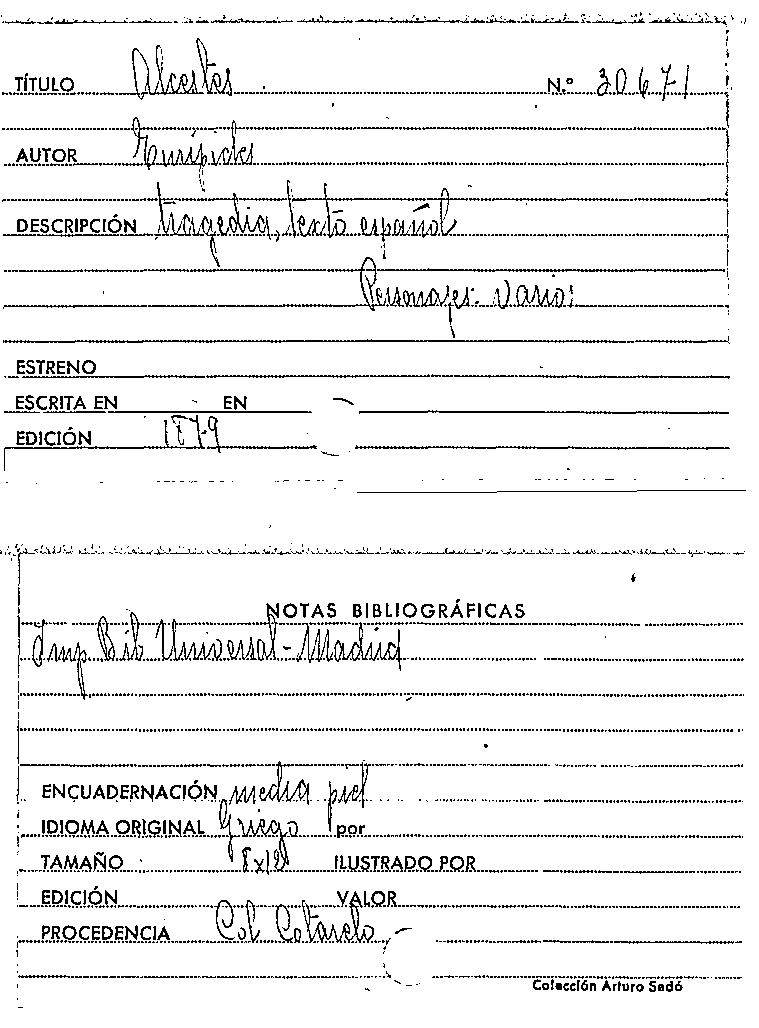 TÍTULO Alcestes N.º 30671
AUTOR Eurípides
DESCRIPCIÓN tragedia, texto español
Personajes: varios
ESTRENO
ESCRITA EN EN
EDICIÓN 1879
NOTAS BIBLIOGRÁFICAS
Imp Bib Universal - Madrid
ENCUADERNACIÓN media piel
IDIOMA ORIGINAL Griego por
TAMAÑO ILUSTRADO POR
EDICIÓN VALOR
PROCEDENCIA Col Cotarelo
Colección Arturo Sedó